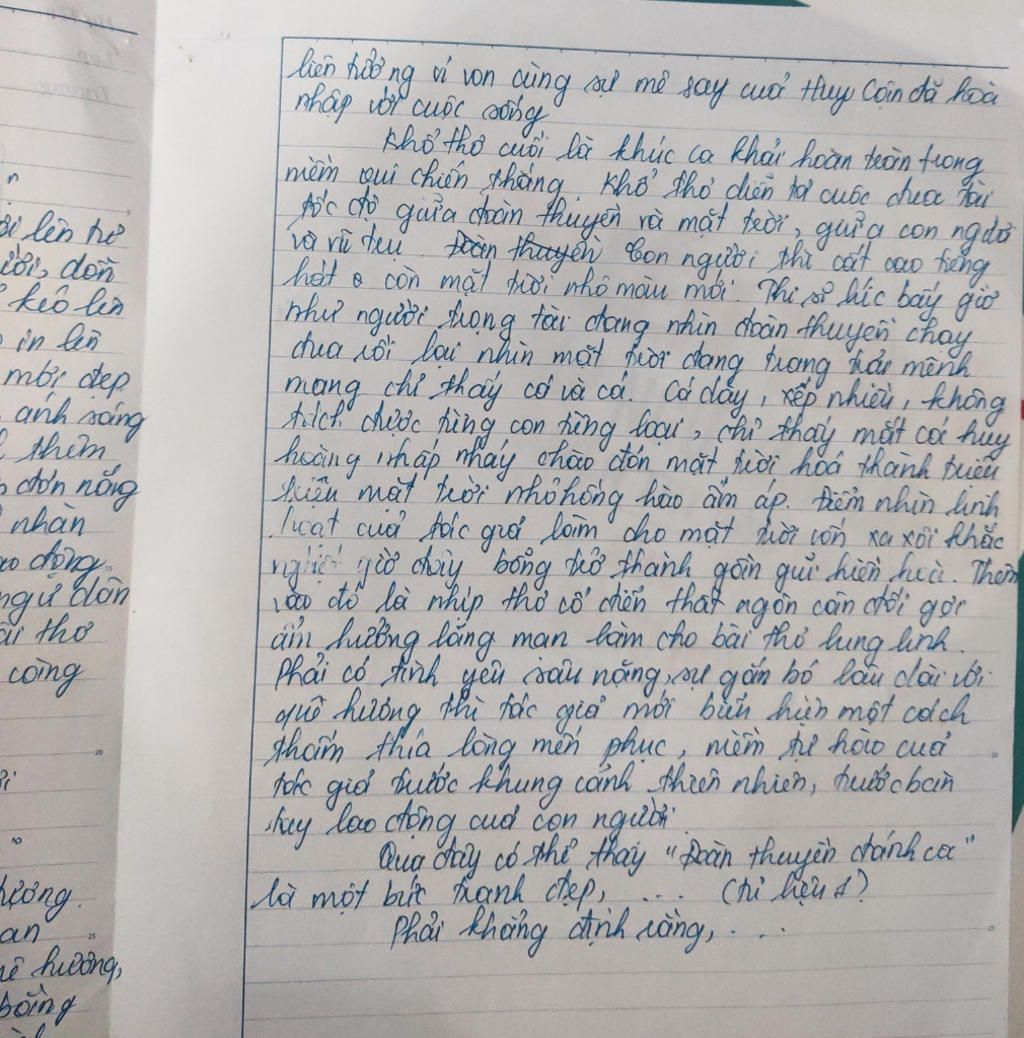 ời lên hơ
ười, dồn
kéo lên
in lên
mới đẹp
ánh sáng
thêm
đón nắng
nhàn
ao động.
ngư dân
ài thơ
công
hương.
an
uê hương,
bỗng
liên tưởng ví von cùng sự mê say của Huy Cận đã hoà
nhập với cuộc sống
Khổ thơ cuối là khúc ca khải hoàn toàn trong
niềm vui chiến thắng. Khổ thơ diễn tả cuộc đua tài
tốc độ giữa đoàn thuyền và mặt trời, giữa con người
và vũ trụ. Đoàn thuyền Con người thì cất cao tiếng
hát còn mặt trời nhô màu mới. Thi sĩ lúc bấy giờ
như người trọng tài đang nhìn đoàn thuyền chạy
đua rồi lại nhìn mặt trời đang trang trải mênh
mang chỉ thấy cá và cá. Cá dày, xếp nhiều, không
trích được từng con từng loại, chỉ thấy mắt cá huy
hoàng nhấp nháy chào đón mặt trời hoá thành triệu
triệu mặt trời nhỏ hồng hào ấm áp. Điểm nhìn linh
hoạt của tác giả làm cho mặt trời vốn xa xôi khắc
nghiệt giờ đây bỗng trở thành gần gũi hiền hoà. Thêm
vào đó là nhịp thơ cổ điển thất ngôn cân đối gợi
âm hưởng lãng mạn làm cho bài thơ lung linh.
Phải có tình yêu sâu nặng, sự gắn bó lâu dài với
quê hương thì tác giả mới biểu hiện một cách
thấm thía lòng mến phục, niềm tự hào của
tác giả trước khung cảnh thiên nhiên, trước bàn
tay lao động của con người.
Qua đây có thể thấy "Đoàn thuyền đánh cá"
là một bức tranh đẹp, .... (tư liệu 1)
Phải khẳng định rằng, ....